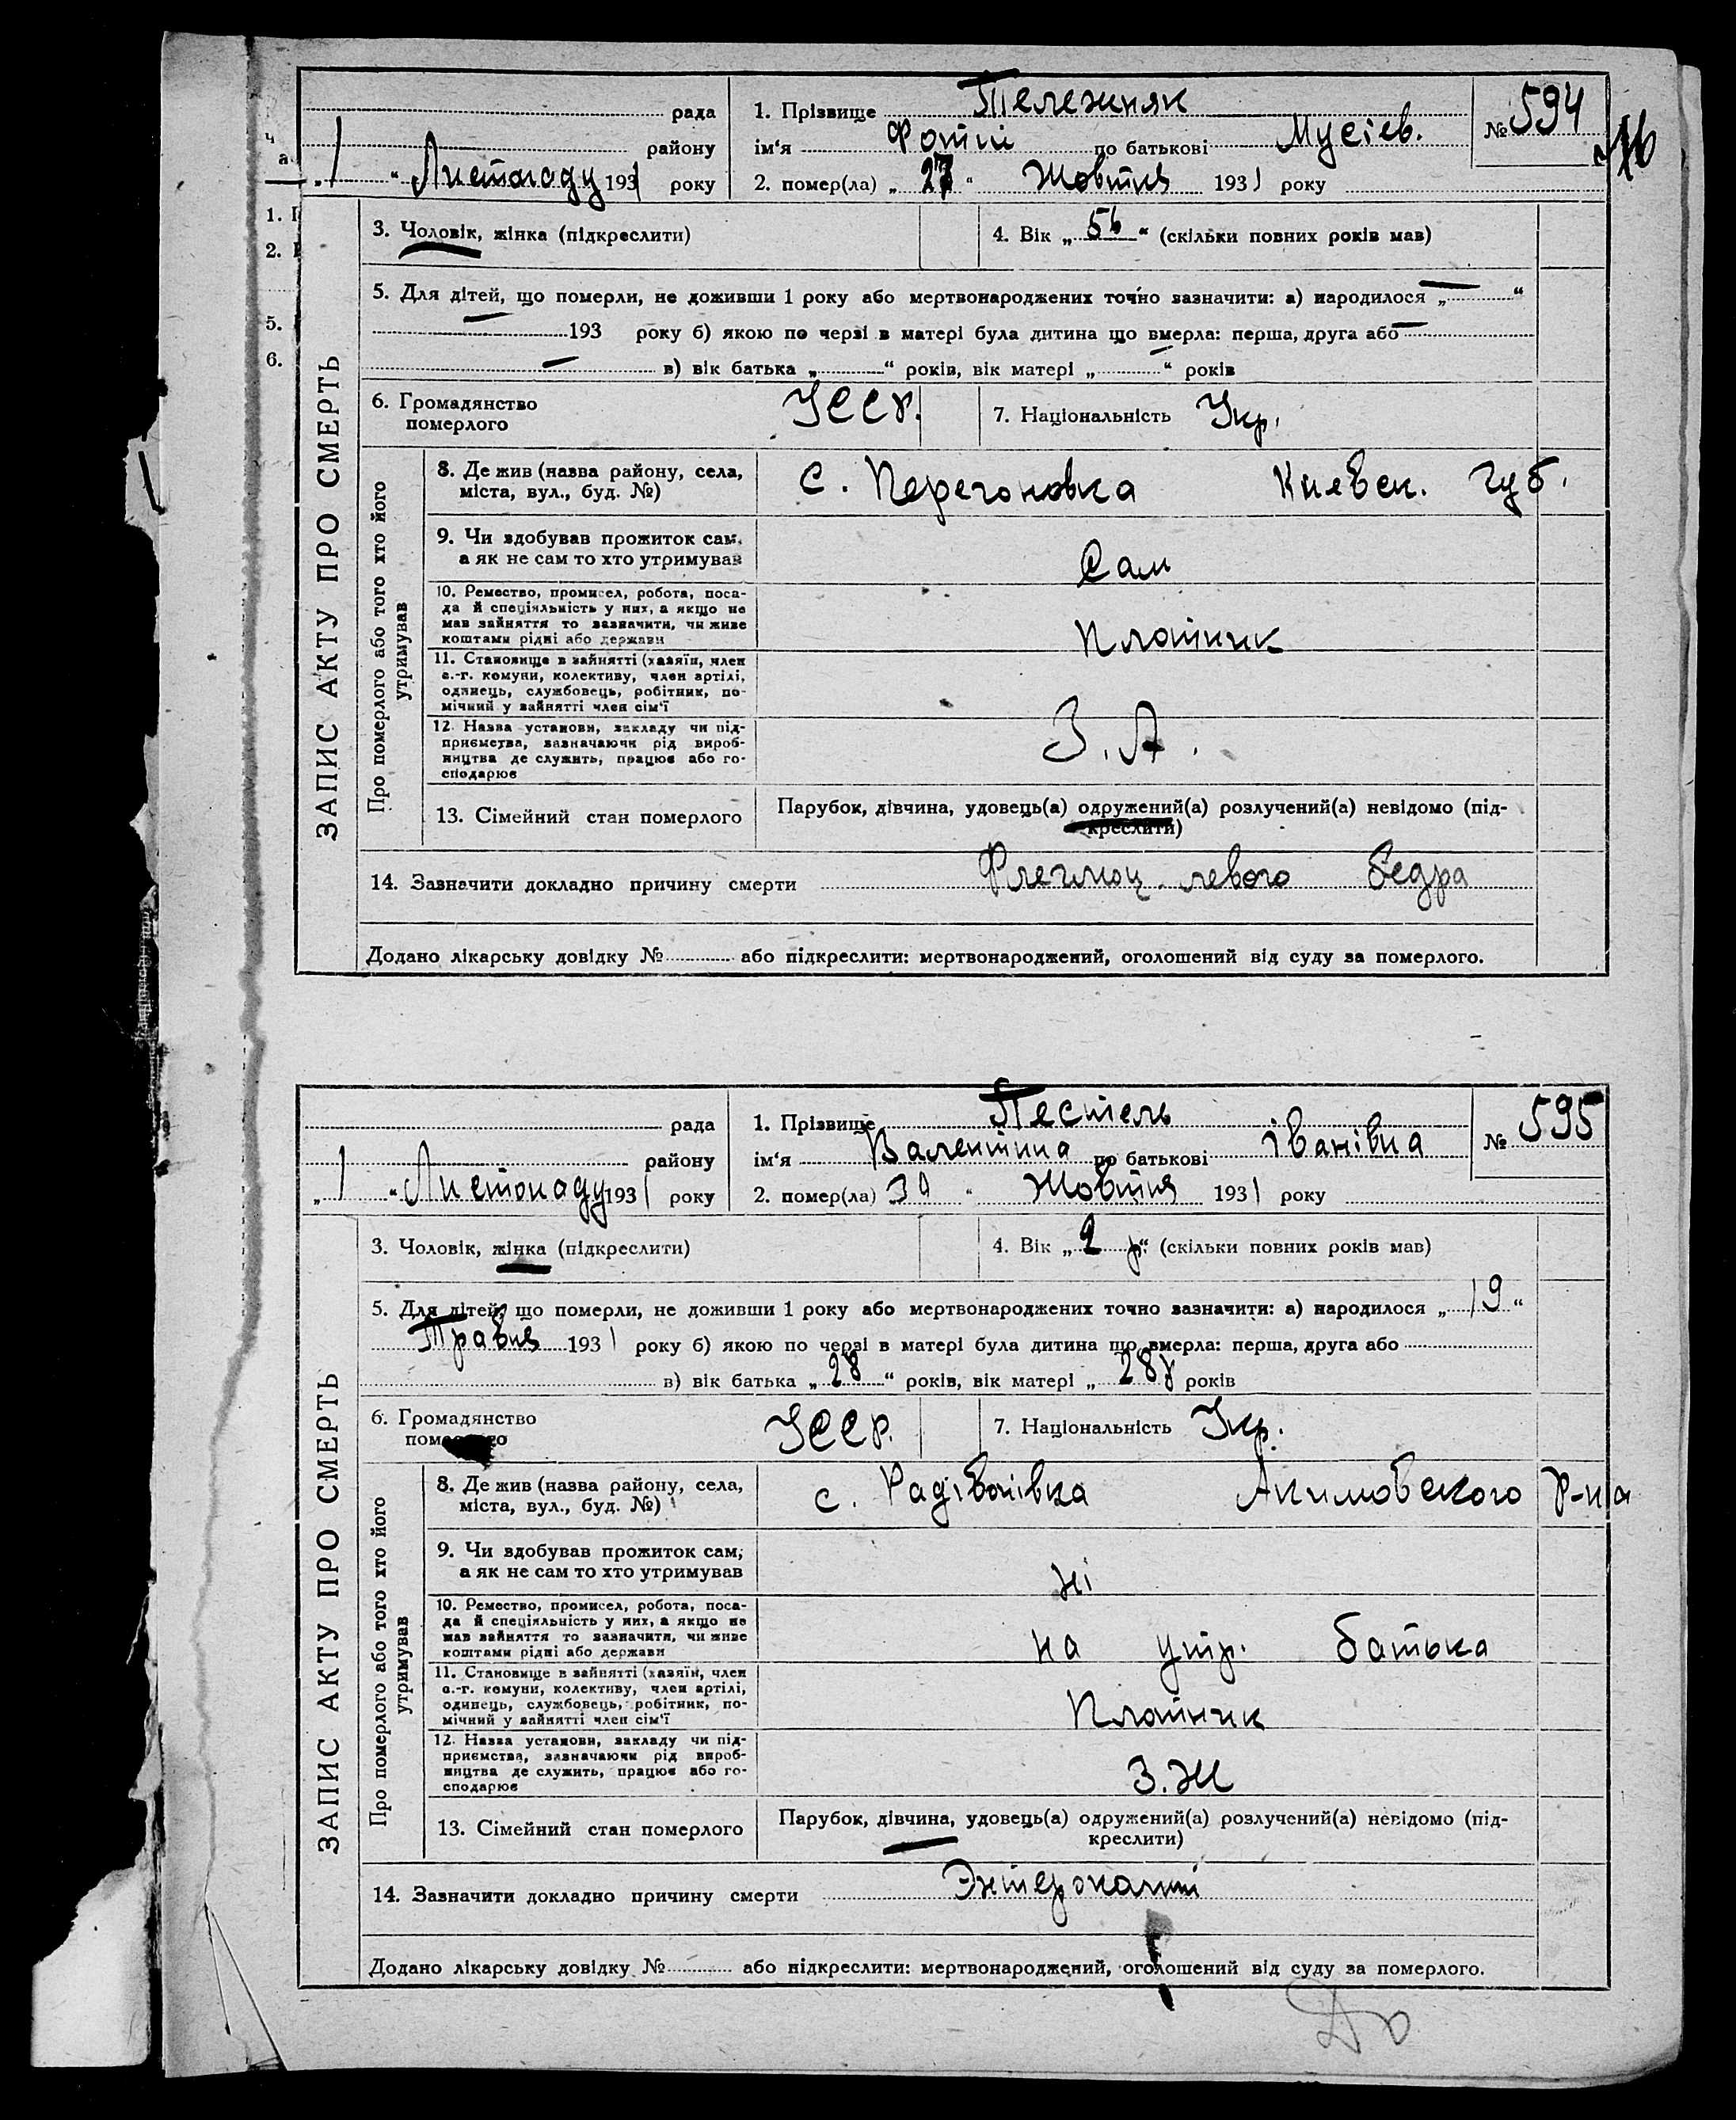 рада
1. Прізвище Тележняк
№ 594
району
ім‘я Фотій по батькові Мусіев.
„1“ Листопаду 1931 року
2. помер(ла) „27“ Жовтня 1931 року
ЗАПИС АКТУ ПРО СМЕРТЬ
3. Чоловік, жінка (підкреслити)
4. Вік „56“ (скільки повних років мав)
5. Для дітей, що померли, не доживши 1 року або мертвонароджених точно зазначити: а) народилося „ — “
— 193 року б) якою по черзі в матері була дитина що вмерла: перша, друга або —
— в) вік батька „ “ років, вік матері „ — “ років
6. Громадянство
померлого
УССР.
7. Національність Укр.
Про померлого або того хто його
утримував
8. Де жив (назва району, села,
міста, вул., буд. №)
С. Перегоновка Киевск. губ.
9. Чи здобував прожиток сам,
а як не сам то хто утримував
Сам
10. Ремество, промисел, робота, поса-
да й спеціяльність у них, а якщо не
мав зайняття то зазначити, чи живе
коштами рідні або держави
Плотник
11. Становище в зайнятті (хазяїн, член
с.-г. комуни, колективу, член артілі,
одинець, службовець, робітник, по-
мічний у зайнятті член сім‘ї
12. Назва установи, закладу чи під-
приємства, зазначаючи рід вироб-
ництва де служить, працює або го-
сподарює
З. А.
13. Сімейний стан померлого
Парубок, дівчина, удовець(а) одружений(а) розлучений(а) невідомо (під-
креслити)
14. Зазначити докладно причину смерти левого бедра
Додано лікарську довідку № або підкреслити: мертвонароджений, оголошений від суду за померлого.
рада
1. Прізвище Пестель
№ 595
району
ім‘я Валентина по батькові Іванівна
„1“ Листопаду 1931 року
2. помер(ла) 30 “ Жовтня 1931 року
ЗАПИС АКТУ ПРО СМЕРТЬ
3. Чоловік, жінка (підкреслити)
4. Вік „2 р.“ (скільки повних років мав)
5. Для дітей, що померли, не доживши 1 року або мертвонароджених точно зазначити: а) народилося „19“
Травня 1931 року б) якою по черзі в матері була дитина що вмерла: перша, друга або
в) вік батька „28“ років, вік матері „28 років
6. Громадянство
померлого
УССР.
7. Національність Укр.
Про померлого або того хто його
утримував
8. Де жив (назва району, села,
міста, вул., буд. №)
с. Радівонівка Акимовского р-на
9. Чи здобував прожиток сам,
а як не сам то хто утримував
Ні
10. Ремество, промисел, робота, поса-
да й спеціяльність у них, а якщо не
мав зайняття то зазначити, чи живе
коштами рідні або держави
на утр. батька
11. Становище в зайнятті (хазяїн, член
с.-г. комуни, колективу, член артілі,
одинець, службовець, робітник, по-
мічний у зайнятті член сім‘ї
Плотник
12. Назва установи, закладу чи під-
приємства, зазначаючи рід вироб-
ництва де служить, працює або го-
сподарює
З. Ж
13. Сімейний стан померлого
Парубок, дівчина, удовець(а) одружений(а) розлучений(а) невідомо (під-
креслити)
14. Зазначити докладно причину смерти
Додано лікарську довідку № або підкреслити: мертвонароджений, оголошений від суду за померлого.